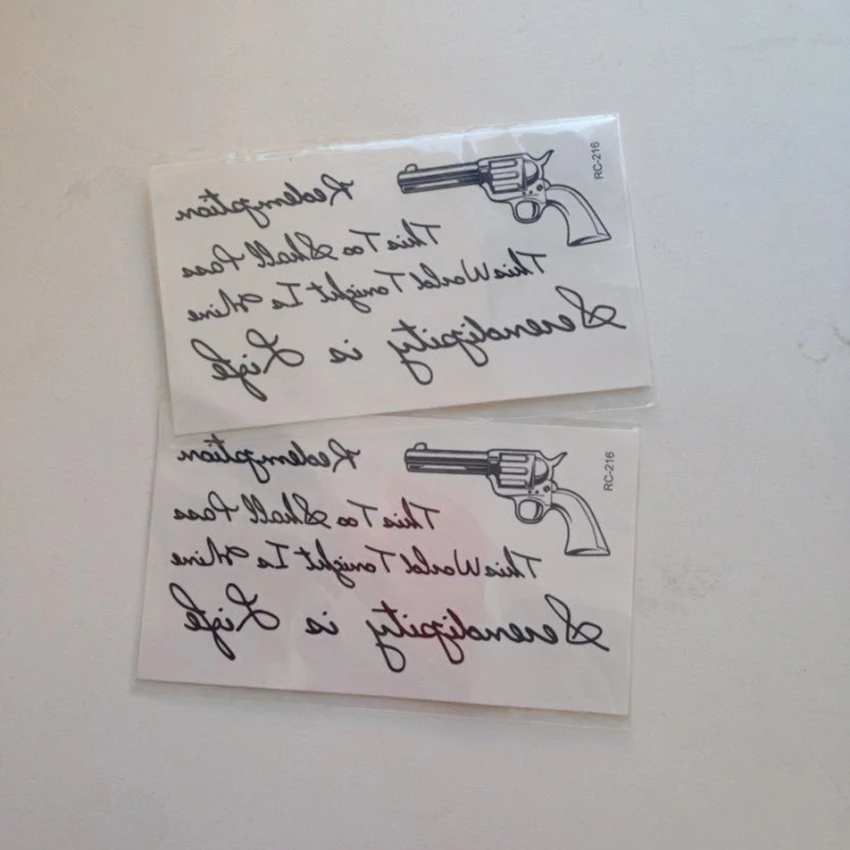 RC-216
Redemption
This Too Shall Pass
This World Tonight Is Mine
Serendipity is Life
RC-216
Redemption
This Too Shall Pass
This World Tonight Is Mine
Serendipity is Life